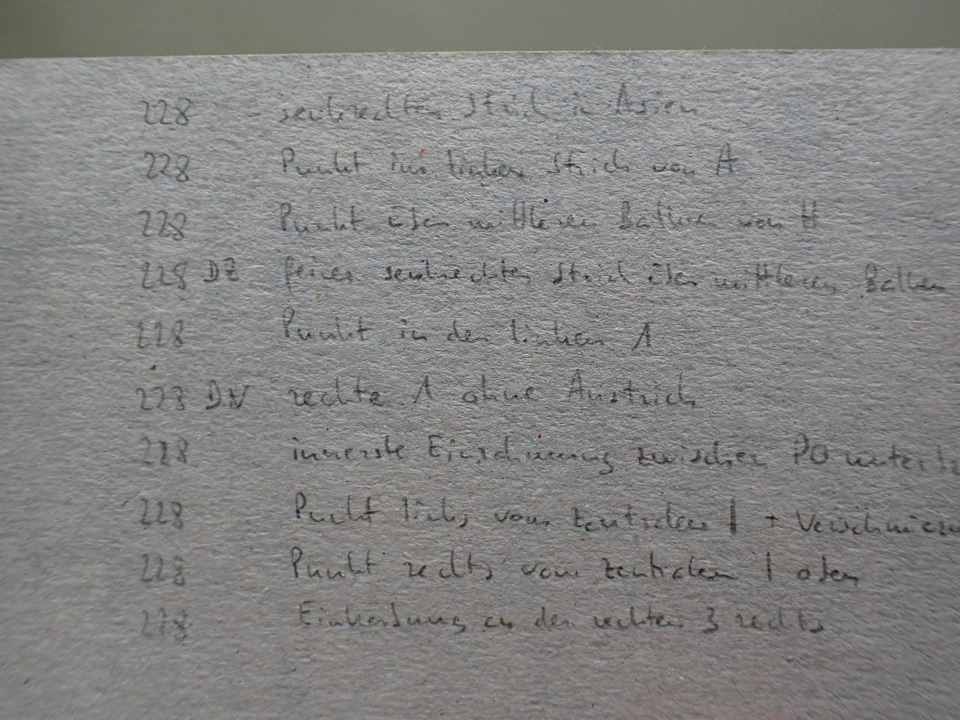 228 - senkrechter Strich in Asien
228 Punkt im linken Strich von A
228 Punkt über mittleren Balken von H
228 DZ feiner senkrechter Strich über mittleren Balken
228 Punkt in der linken 1
228 DN rechte 1 ohne Anstrich
228 innerste Einschnürung zwischen PO
228 Punkt links vom zentralen | +
228 Punkt rechts vom zentralen | oben
228 Einkerbung an der rechten 3 rechts